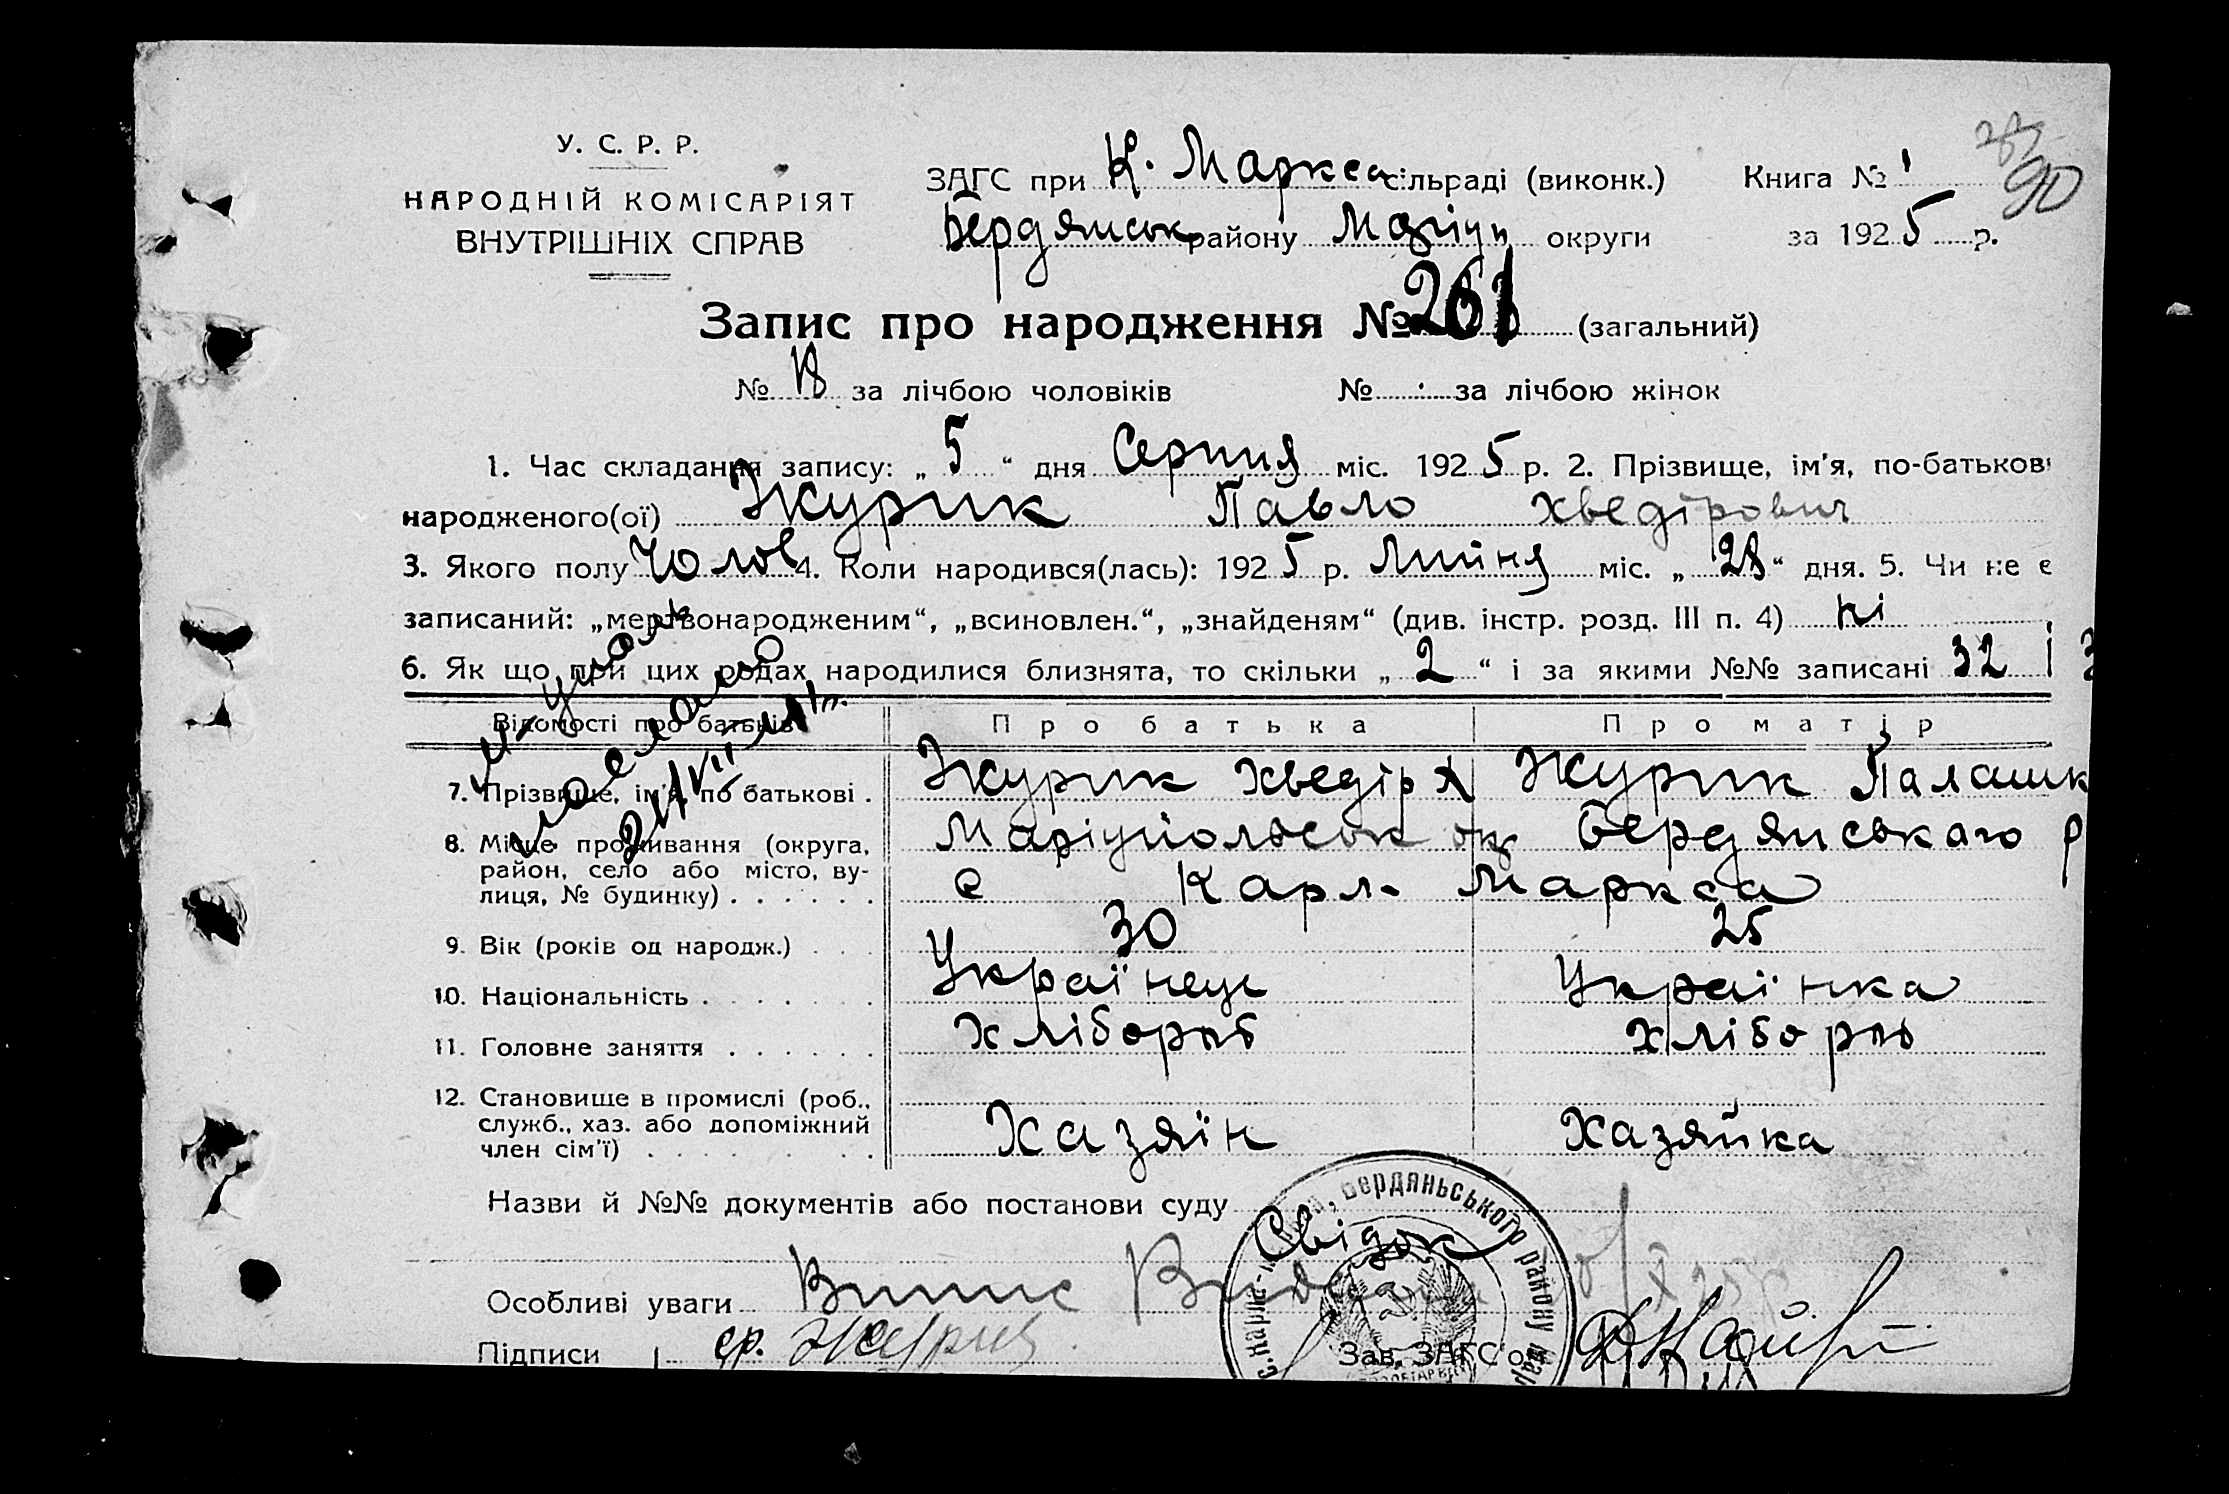 У. С. Р. Р.
НАРОДНІЙ КОМІСАРІЯТ
ВНУТРІШНІХ СПРАВ
ЗАГС при К. Маркса сільраді (виконк.) Книга № 1
90
Бердянськ району Маріуп округи за 1925 р.
Запис про народження № 261 (загальний)
№ за лічбою чоловіків № за лічбою жінок
1. Час складання запису: „ 5 “ дня Серпня міс. 1925 р. 2. Прізвище, ім'я, по-батькові
народженого(ої) Журик Павло Хведірович
3. Якого полу Чолов 4. Коли народився(лась): 1925 р. Липня міс. „ 28 “ дня. 5. Чи не є
записаний: „мертвонародженим“, „всиновлен.“, „знайденям“ (див. інстр. розд. III п. 4) ні
6. Як що при цих родах народилися близнята, то скільки „ 2 “ і за якими №№ записані 32 і 3
Відомості про батьків Про батька Про матір
7. Прізвище, ім'я, по батькові . Журик Хведір Х Журик Палашк
8. Місце проживання (округа, район, село або місто, вулиця, № будинку) . . . . . . Маріупольськ ок Бердянського р
с Карл- Маркса
9. Вік (років од народж.) . . . 30 25
10. Національність . . . . . . . Українец Українка
11. Головне заняття . . . . . . Хлібороб Хлібороб
12. Становище в промислі (роб., служб., хаз. або допоміжний член сім'ї) . . . . . . . . Хазяїн Хазяйка
Назви й №№ документів або постанови суду
Свідок
Особливі уваги Випис Видана
Підписи ср. Журик Зав. ЗАГС'ом
Бердянського району